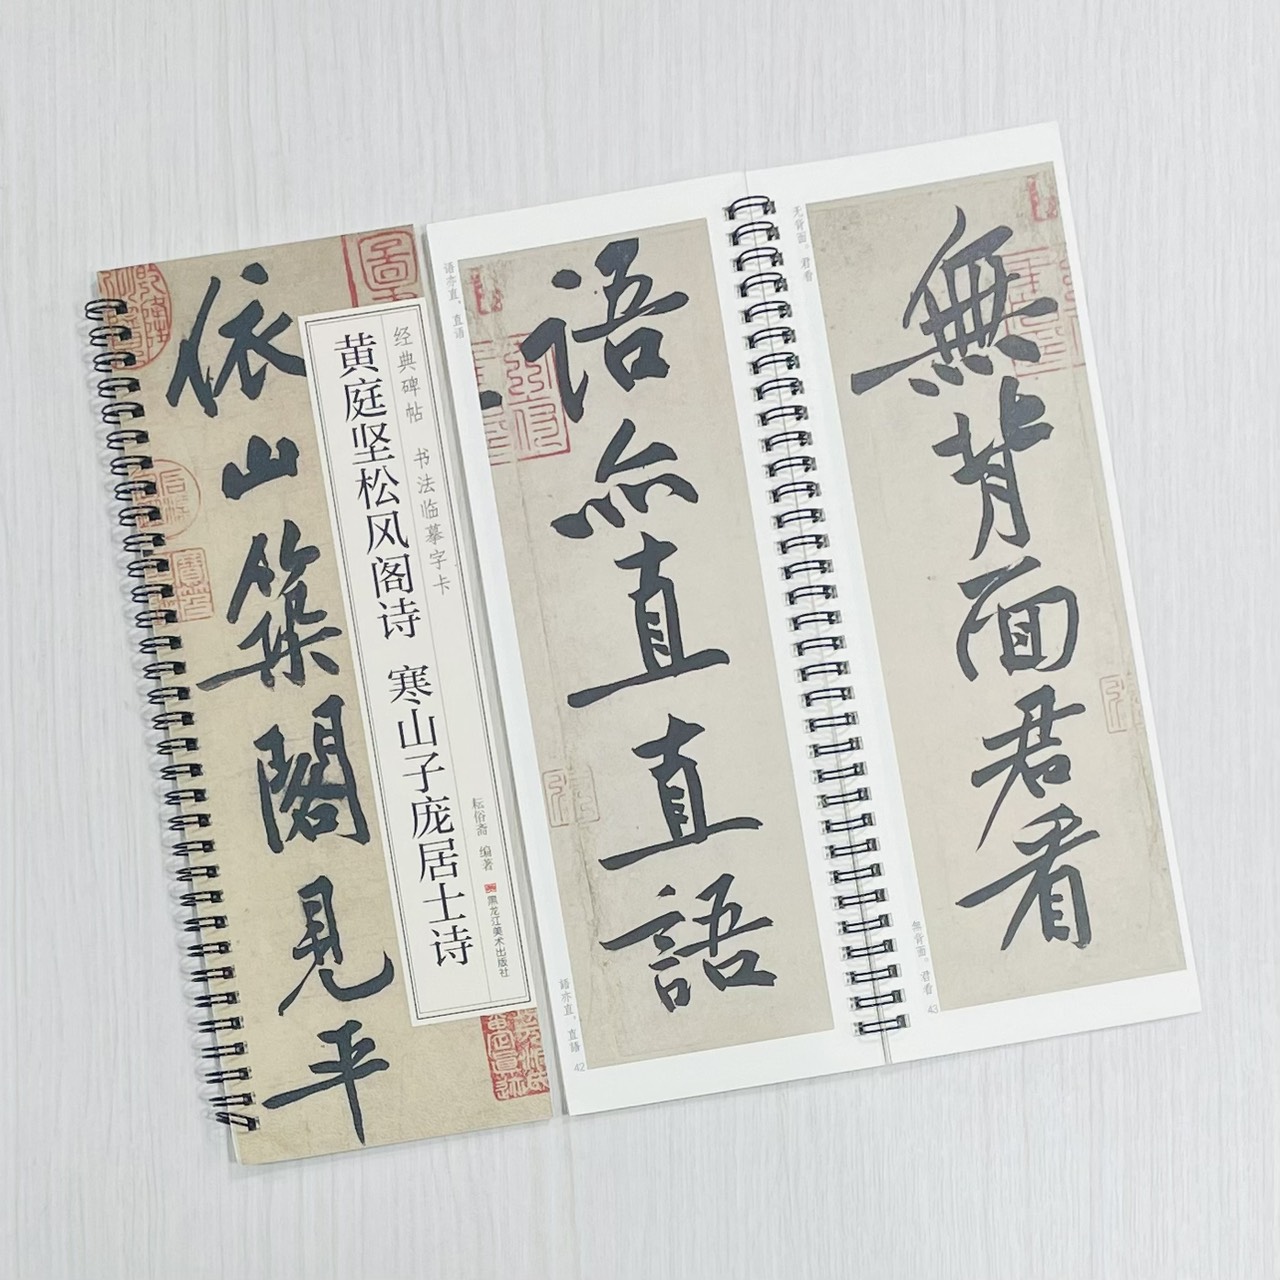 依山築閣見平
经典碑帖 书法临摹字卡
黄庭坚松风阁诗 寒山子庞居士诗
耘俗斋 编著
黑龙江美术出版社
语亦直，直语
語亦直直語
語亦直，直語 42
无背面。君看
無背面君看
無背面。君看 43